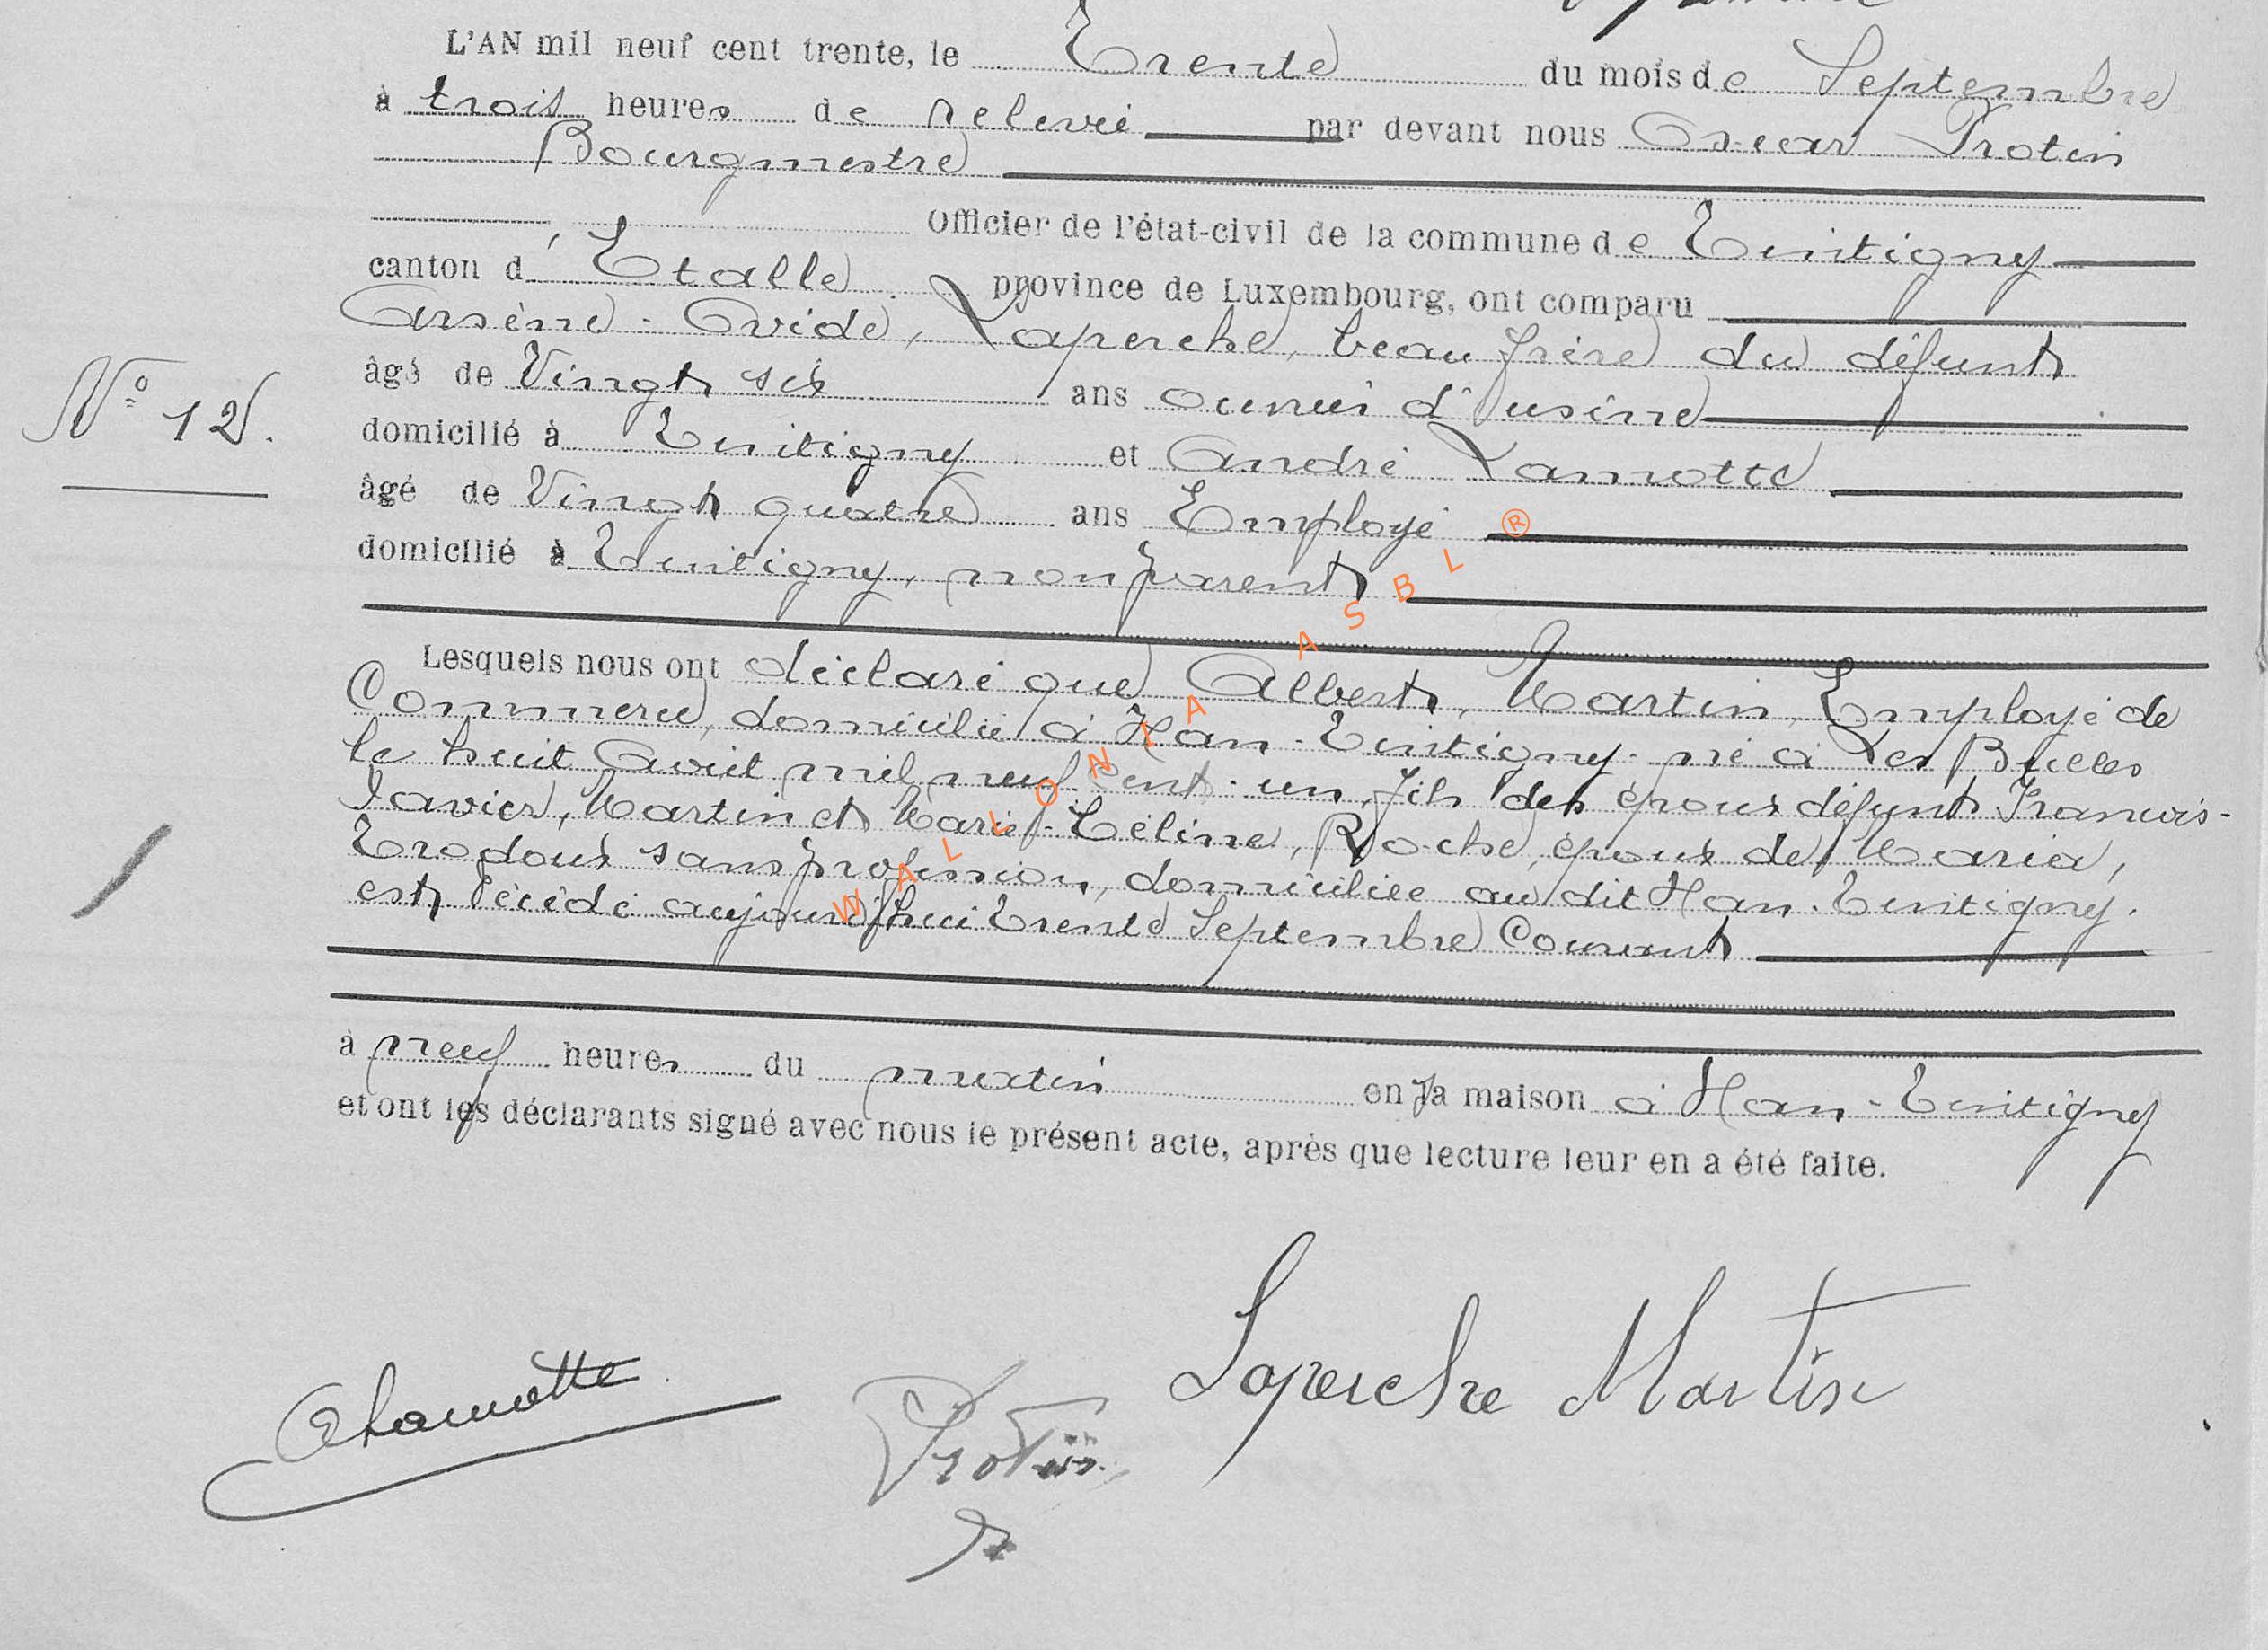 L'AN mil neuf cent trente, le Trente du mois de Septembre
à trois heures de relevée par devant nous Oscar Protin
Bourgmestre
Officier de l'état-civil de la commune de Tintigny
canton d'Etalle province de Luxembourg, ont comparu
Arsène-Ovide, Laperche, beau frère du défunt
âgé de Vingt six ans ouvrier d'usine
N° 12.
domicilié à Tintigny et André Lamotte
âgé de Vingt quatre ans Employé
domicilié à Tintigny, non parent
Lesquels nous ont déclaré que Albert, Martin, Employé de
Commerce, domicilié à Han-Tintigny né à Les Bulles
le huit Avril mil neuf cent un, fils des époux défunts François-
Xavier, Martin et Marie-Céline, Roche, époux de Maria,
sans profession, domiciliée au dit Han-Tintigny.
est décédé aujourd'hui Trente Septembre Courant
à neuf heures du matin en sa maison à Han-Tintigny
et ont les déclarants signé avec nous le présent acte, après que lecture leur en a été faite.
Laperche Martin
ALamotte
Protin
WALLONIA ASBL ®